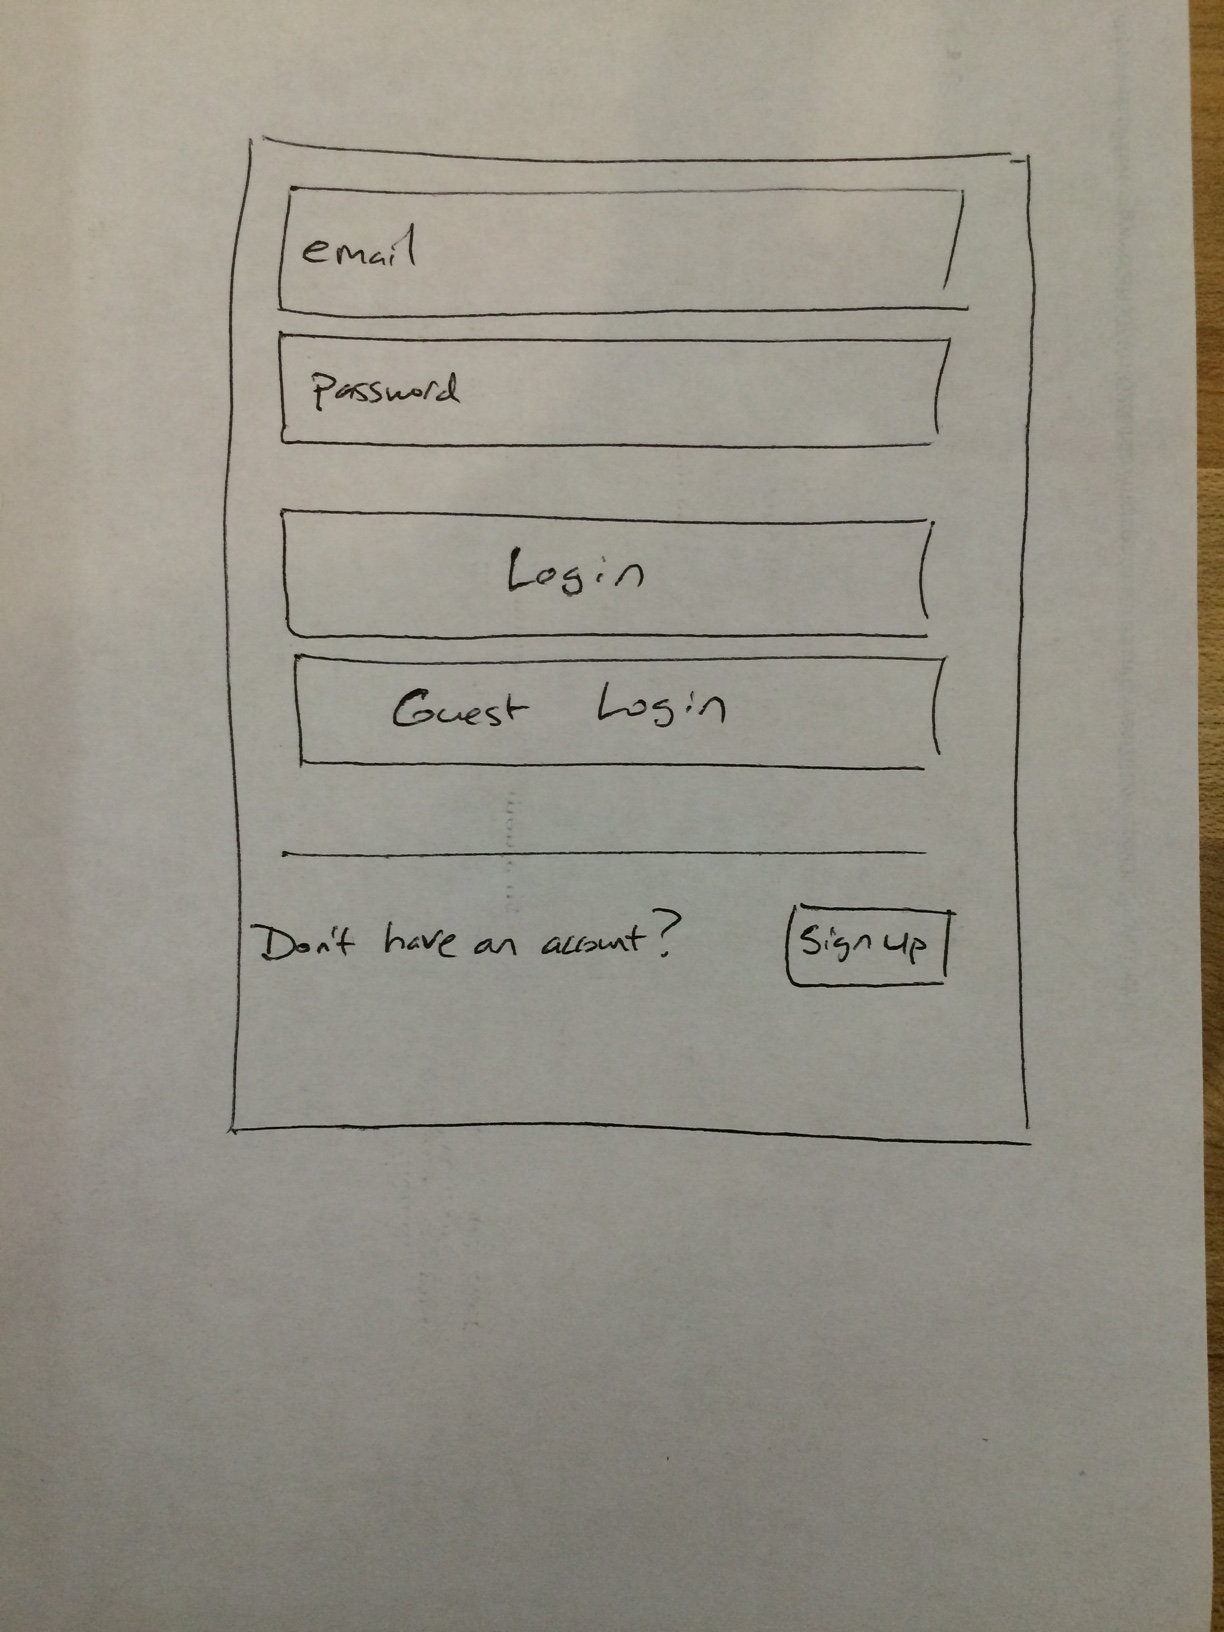 email
Password
Login
Guest Login
Don't have an account? Sign up